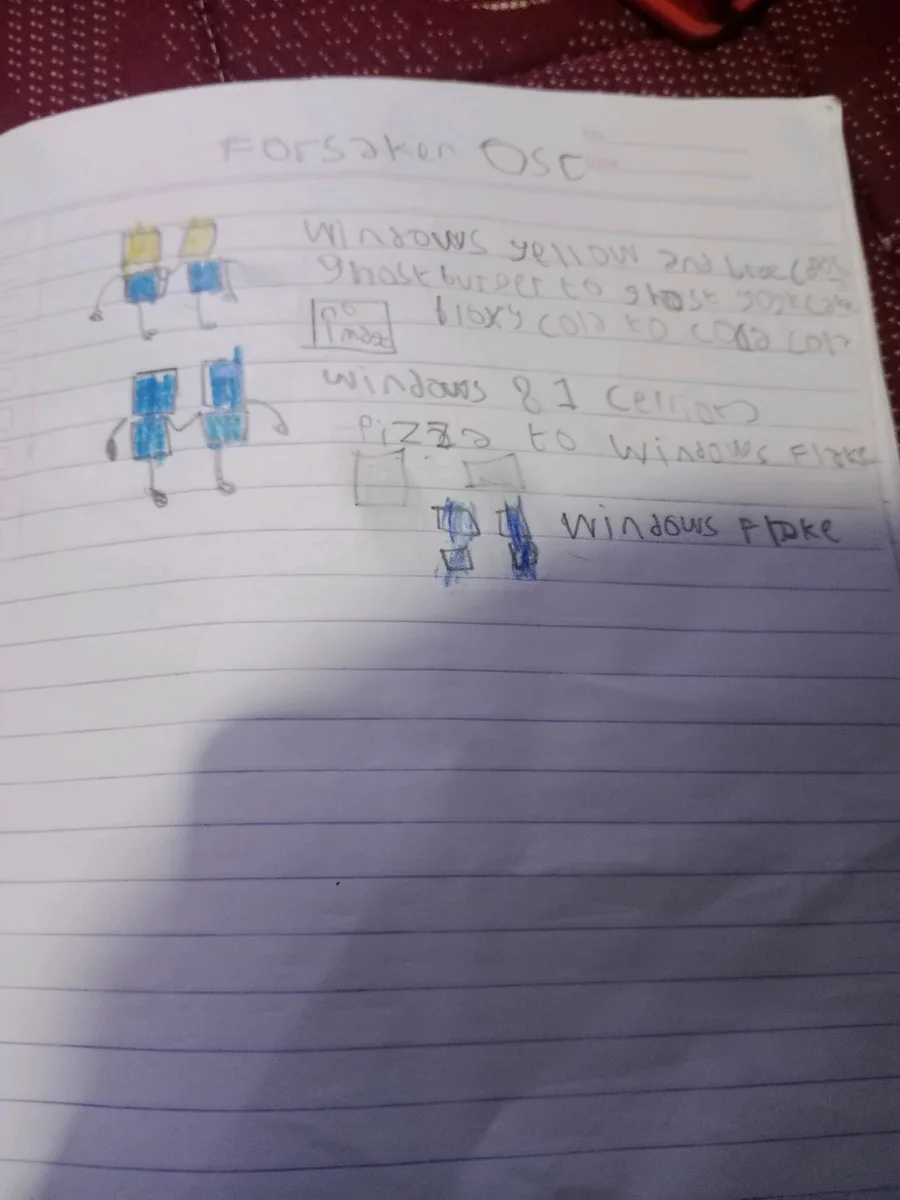 Forsaken OSC
windows yellow and
ghost burger to ghost
no
Imax
bloxy cola to cola
windows 8 1
Pizza to windows Flake
windows Flake